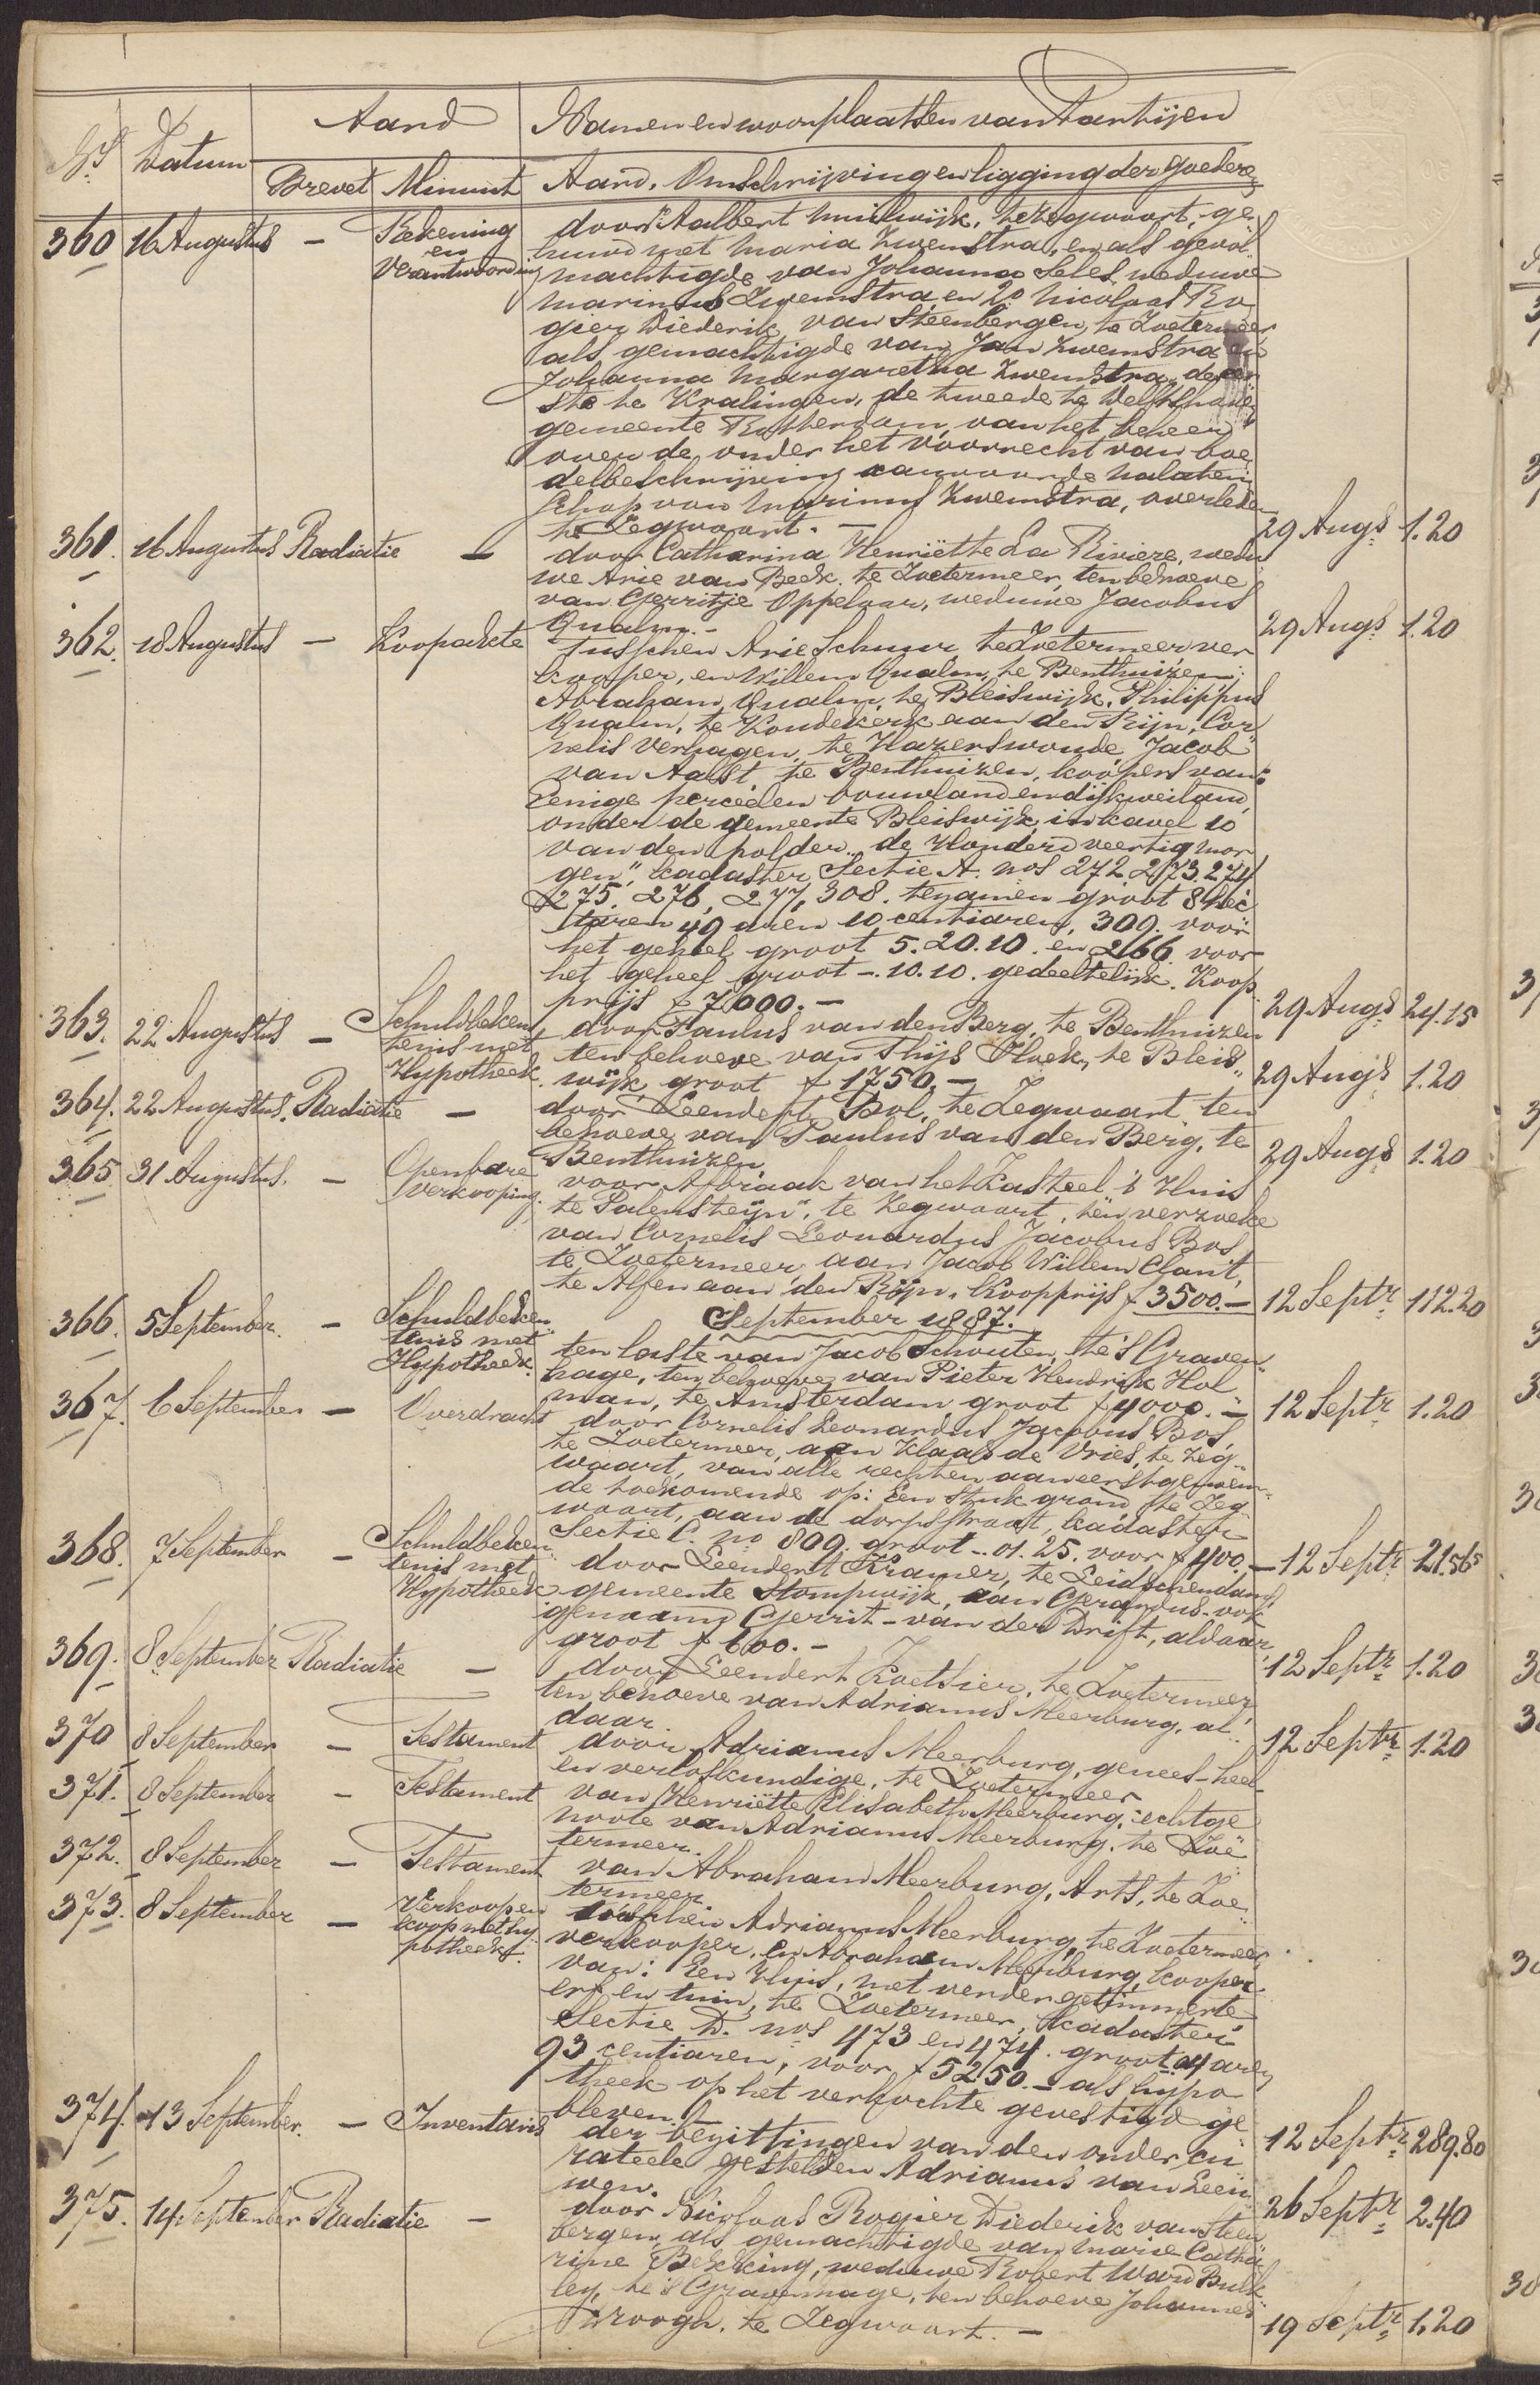 No. Datum Aard Namen en woonplaatsen van Partijen
Brevet Minuut Aard, Omschrijving en ligging der goedere
360 16 Augustus - Rekening door 1o Aalbert Muilwijk, te Zegwaart, ge
en huwd met Maria Zwenstra, en als gevol
Verantwoording machtigde van Johanna Seles, weduwe
Marinus Zwenstra en 2o Nicolaas Ro
gier Diederik van Steenbergen, te Zoetermeer
als gemachtigde van Jan Zwenstra en
Johanna Margaretha Zwenstra, de eer
ste te Kralingen, de tweede te Delfshaven
gemeente Rotterdam, van het beheer
over de onder het voorrecht van boe
delbeschrijving aanvaarde nalaten
schap van Marinus Zwenstra, overleden
te Zegwaart. - 29 Augs 1.20
361. 16 Augustus Radiatie - door Catharina Henriëtte La Riviere, wedu
we Arie van Beek, te Zoetermeer, ten behoeve
van Gerritje Oppelaar, weduwe Jacobus
Qualm. - 29 Augs 1.20
362. 18 Augustus - Koopakte tusschen Arie Schuur, te Zoetermeer ver
kooper, en Willem Qualm, te Benthuizen,
Abraham Qualm, te Bleiswijk, Philippus
Qualm, te Koudekerk aan den Rijn, Cor
nelis Verhagen, te Hazerswoude, Jacob
van Aalst, te Benthuizen, koopers van:
Eenige perceelen bouwland en dijkweiland,
onder de gemeente Bleiswijk, in kavel 10
van den polder „de Honderd veertig mor
gen", kadaster Sectie A. nos 272 273. 274
275. 276, 277, 308. tezamen groot 8 hec
taren 49 aren 10 centiaren, 309. voor
het geheel groot 5.20.10. en 266 voor
het geheel groot -.10.10. gedeeltelijk. Koop
prijs ƒ 7000.- 29 Augs 24.15
363. 22 Augustus - Schuldbeken door Paulus van den Berg, te Benthuizen
tenis met ten behoeve van Thijs Hoek, te Bleis
Hypotheek. wijk, groot ƒ 1750.- 29 Augs 1.20
364. 22 Augustus. Radiatie - door Leendert Bol, te Zegwaart ten
behoeve van Paulus van den Berg, te
Benthuizen. 29 Augs 1.20
365. 31 Augustus. - Openbare voor Afbraak van het Kasteel 't Huis
verkooping. te Palensteijn", te Zegwaart, ten verzoeke
van Cornelis Leonardus Jacobus Bos,
te Zoetermeer, aan Jacob Willem Clant,
te Alfen aan den Rijn. Koopprijs ƒ 3500.- 12 Septr. 112.20
September 1887.
366. 5 September. - Schuldbeken ten laste van Jacob Schouten, te 's Graven
tenis met hage, ten behoeve van Pieter Hendrik Hol
Hypotheek. man, te Amsterdam, groot ƒ 4000.- 12 Septr 1.20
367. 6 September - Overdracht door Cornelis Leonardus Jacobus Bos,
te Zoetermeer, aan Klaas de Vries, te Zeg
waart, van alle rechten aan eerstgenoem
de toekomende op: Een stuk grond te Zeg
waart, aan de dorpsstraat, kadaster
Sectie C. no 809. groot -.01.25. voor ƒ 400.- 12 Septr 21.56⁵
368. 7 September - Schuldbeken door Leendert Kramer, te Leidschendam
tenis met gemeente Stompwijk, aan Gerardus - ook
Hypotheek genaamd Gerrit - van der Drift, aldaar,
groot ƒ 600.- 12 Septr 1.20
369. 8 September Radiatie - door Leendert Koetsier, te Zoetermeer,
ten behoeve van Adrianus Meerburg, al
daar. 12 Septr 1.20
370 8 September - Testament door Adrianus Meerburg, genees- heel
en verloskundige, te Zoetermeer
371. 8 September - Testament van Henriëtte Elisabeth Meerburg, echtge
noote van Adrianus Meerburg, te Zoe
termeer.
372. 8 September - Testament van Abraham Meerburg, Arts, te Zoe
termeer.
373. 8 September - Verkoop en tusschen Adrianus Meerburg, te Zoetermeer
koop met hy verkooper, en Abraham Meerburg, kooper
potheek. van: Een Huis, met verder getimmerte
erf en tuin, te Zoetermeer, kadaster
Sectie D. nos 473 en 474. groot 4 aren
93 centiaren, voor ƒ 5250.- als hypo
theek op het verkochte gevestigd ge
bleven. 12 Septr 289.80
374. 13 September. - Inventaris der bezittingen van den onder cu
rateele gestelden Adrianus van Leeu
wen. 26 Septr 2.40
375. 14 September Radiatie - door Nicolaas Rogier Diederik van Steen
bergen, als gemachtigde van Marie Catha
rine Bekking, weduwe Robert Ward Bulk
ley, te 's Gravenhage, ten behoeve Johannes
Droogh, te Zegwaart. - 19 Septr 1.20